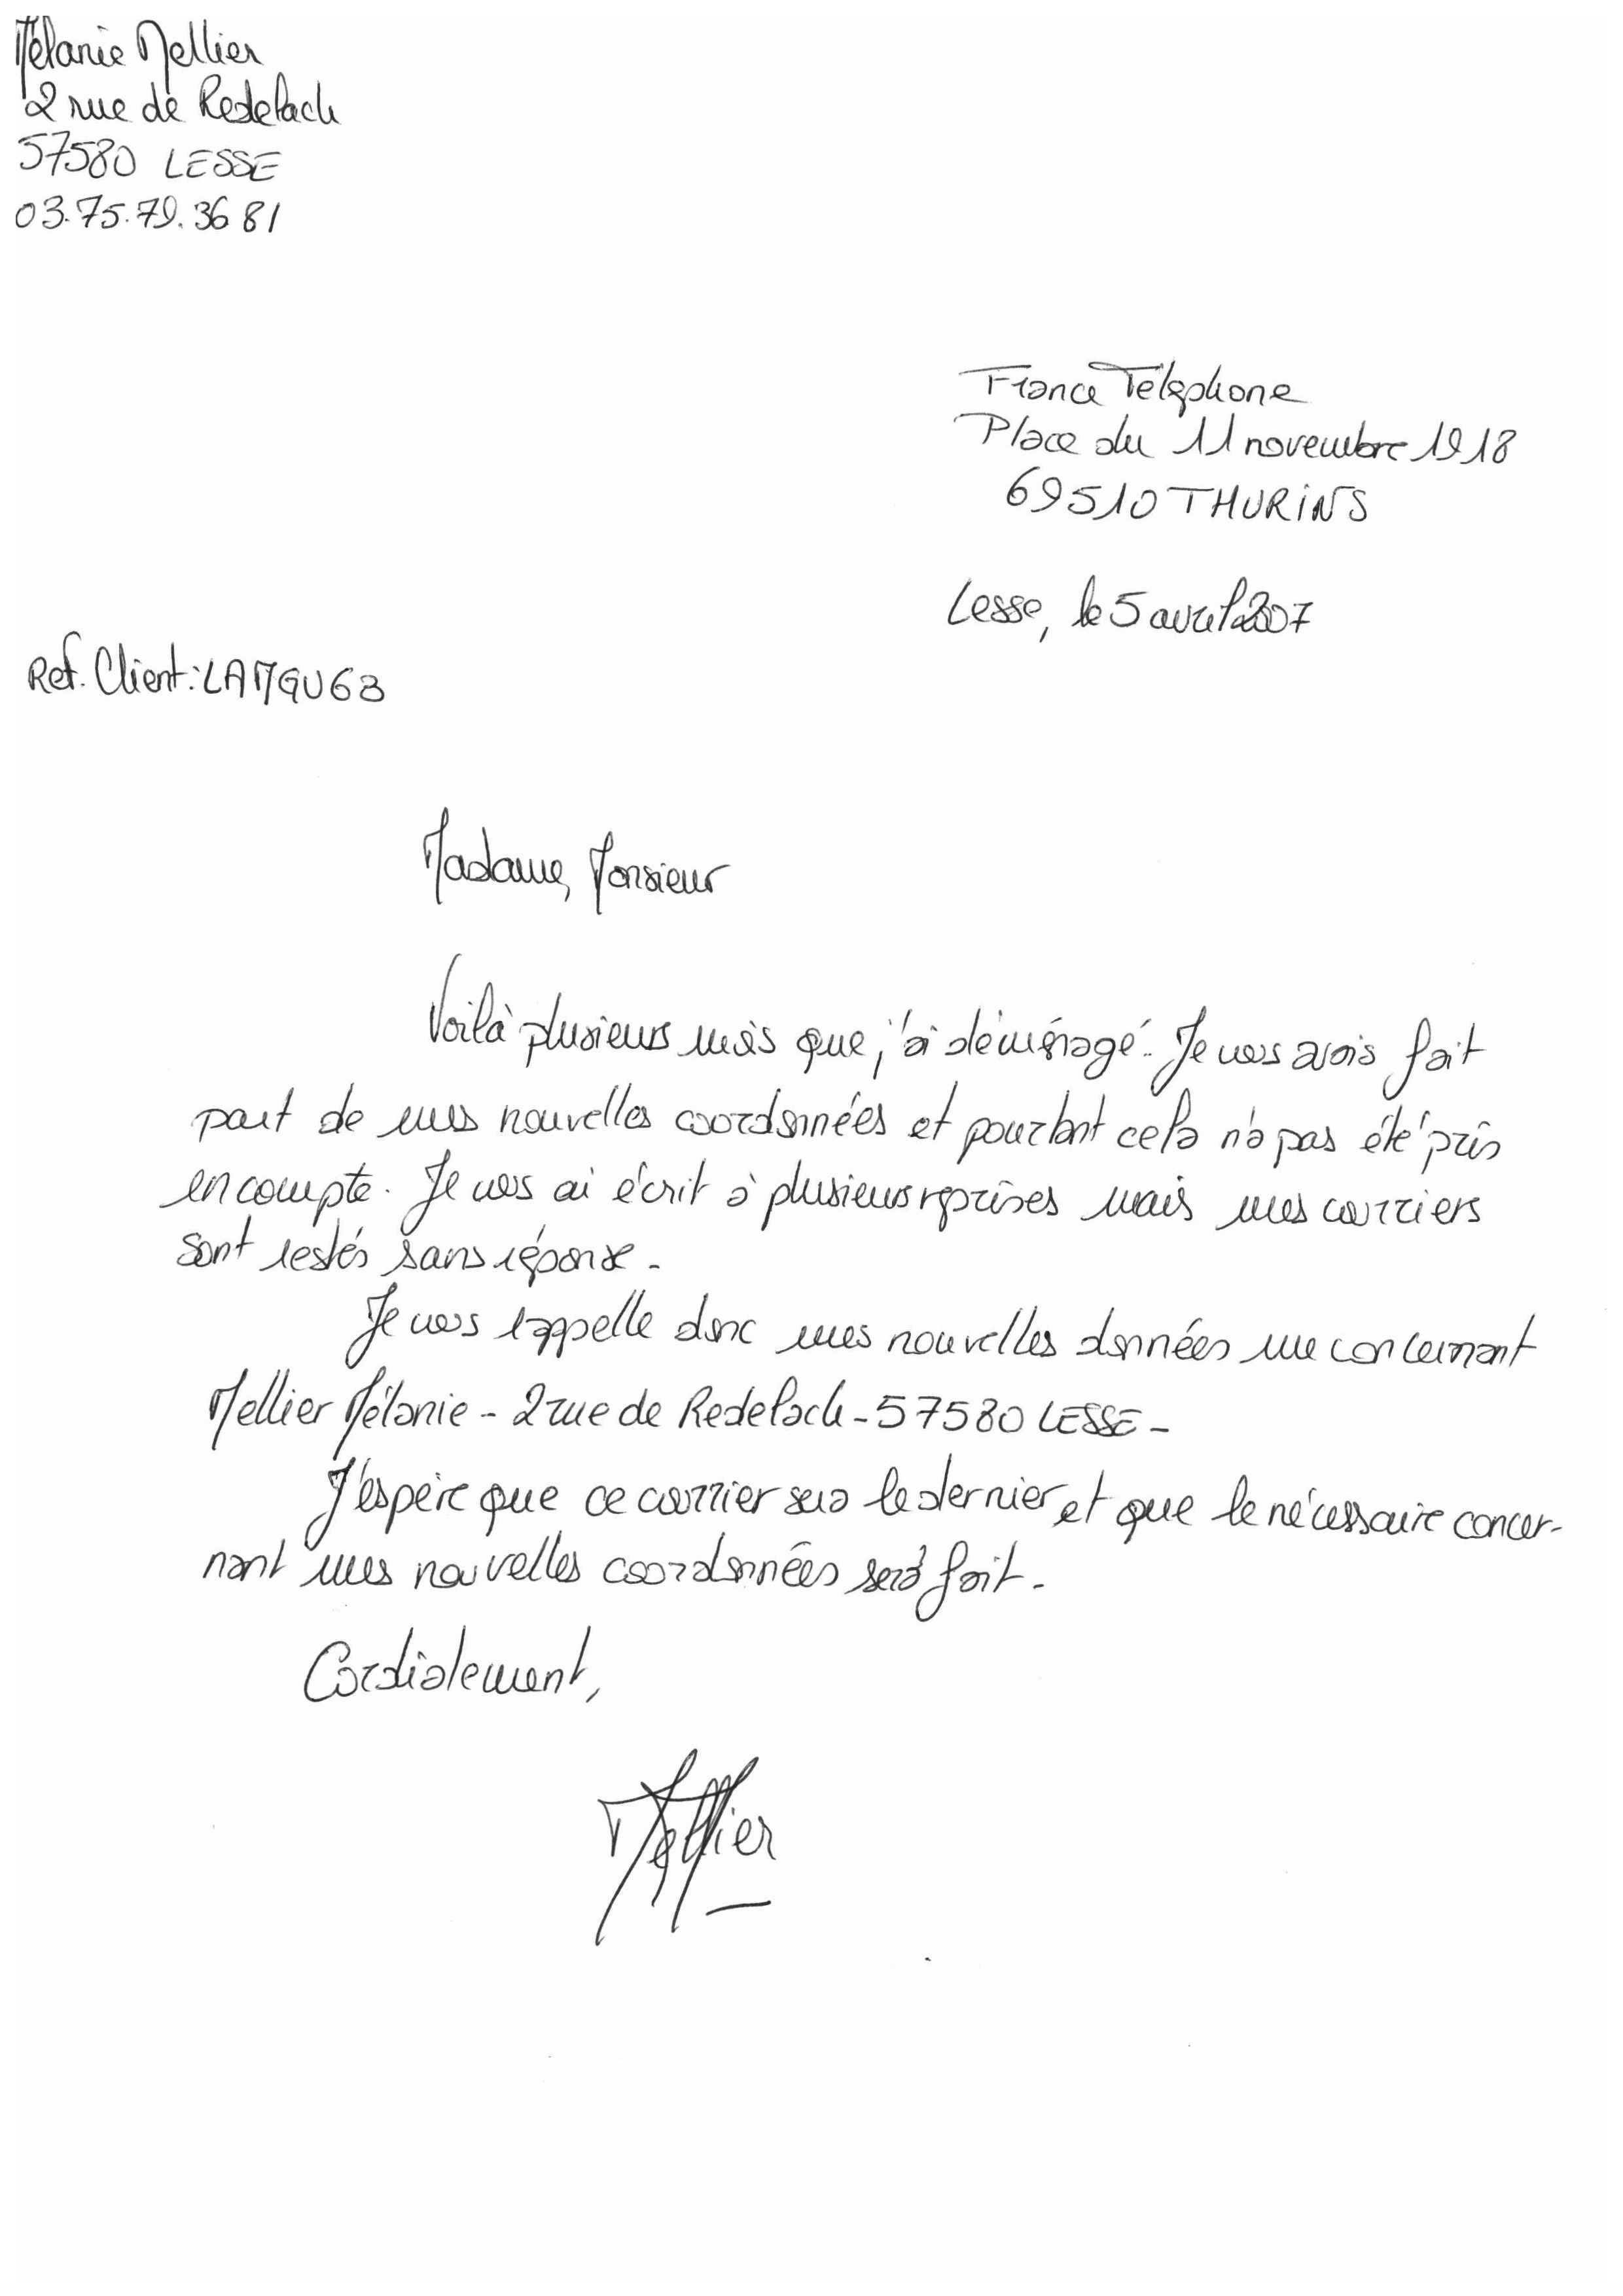 Mélanie Mellier
2 rue de Redelach
57580 LESSE
03.75.79.36 81
France Téléphone
Place du 11 novembre 1918
69510 THURINS
Lesse, le 5 avril 2007
Ref. Client : LAMQU63
Madame, Monsieur
Voilà plusieurs mois que j'ai déménagé. Je vous avais fait
part de mes nouvelles coordonnées et pourtant cela n'a pas été pris
en compte. Je vous ai écrit à plusieurs reprises mais mes courriers
sont restés sans réponse.
Je vous rappelle donc mes nouvelles données me concernant
Mellier Mélanie - 2 rue de Redelach - 57580 LESSE -
J'espère que ce courrier sera le dernier et que le nécessaire concer-
nant mes nouvelles coordonnées sera fait.
Cordialement,
Mellier